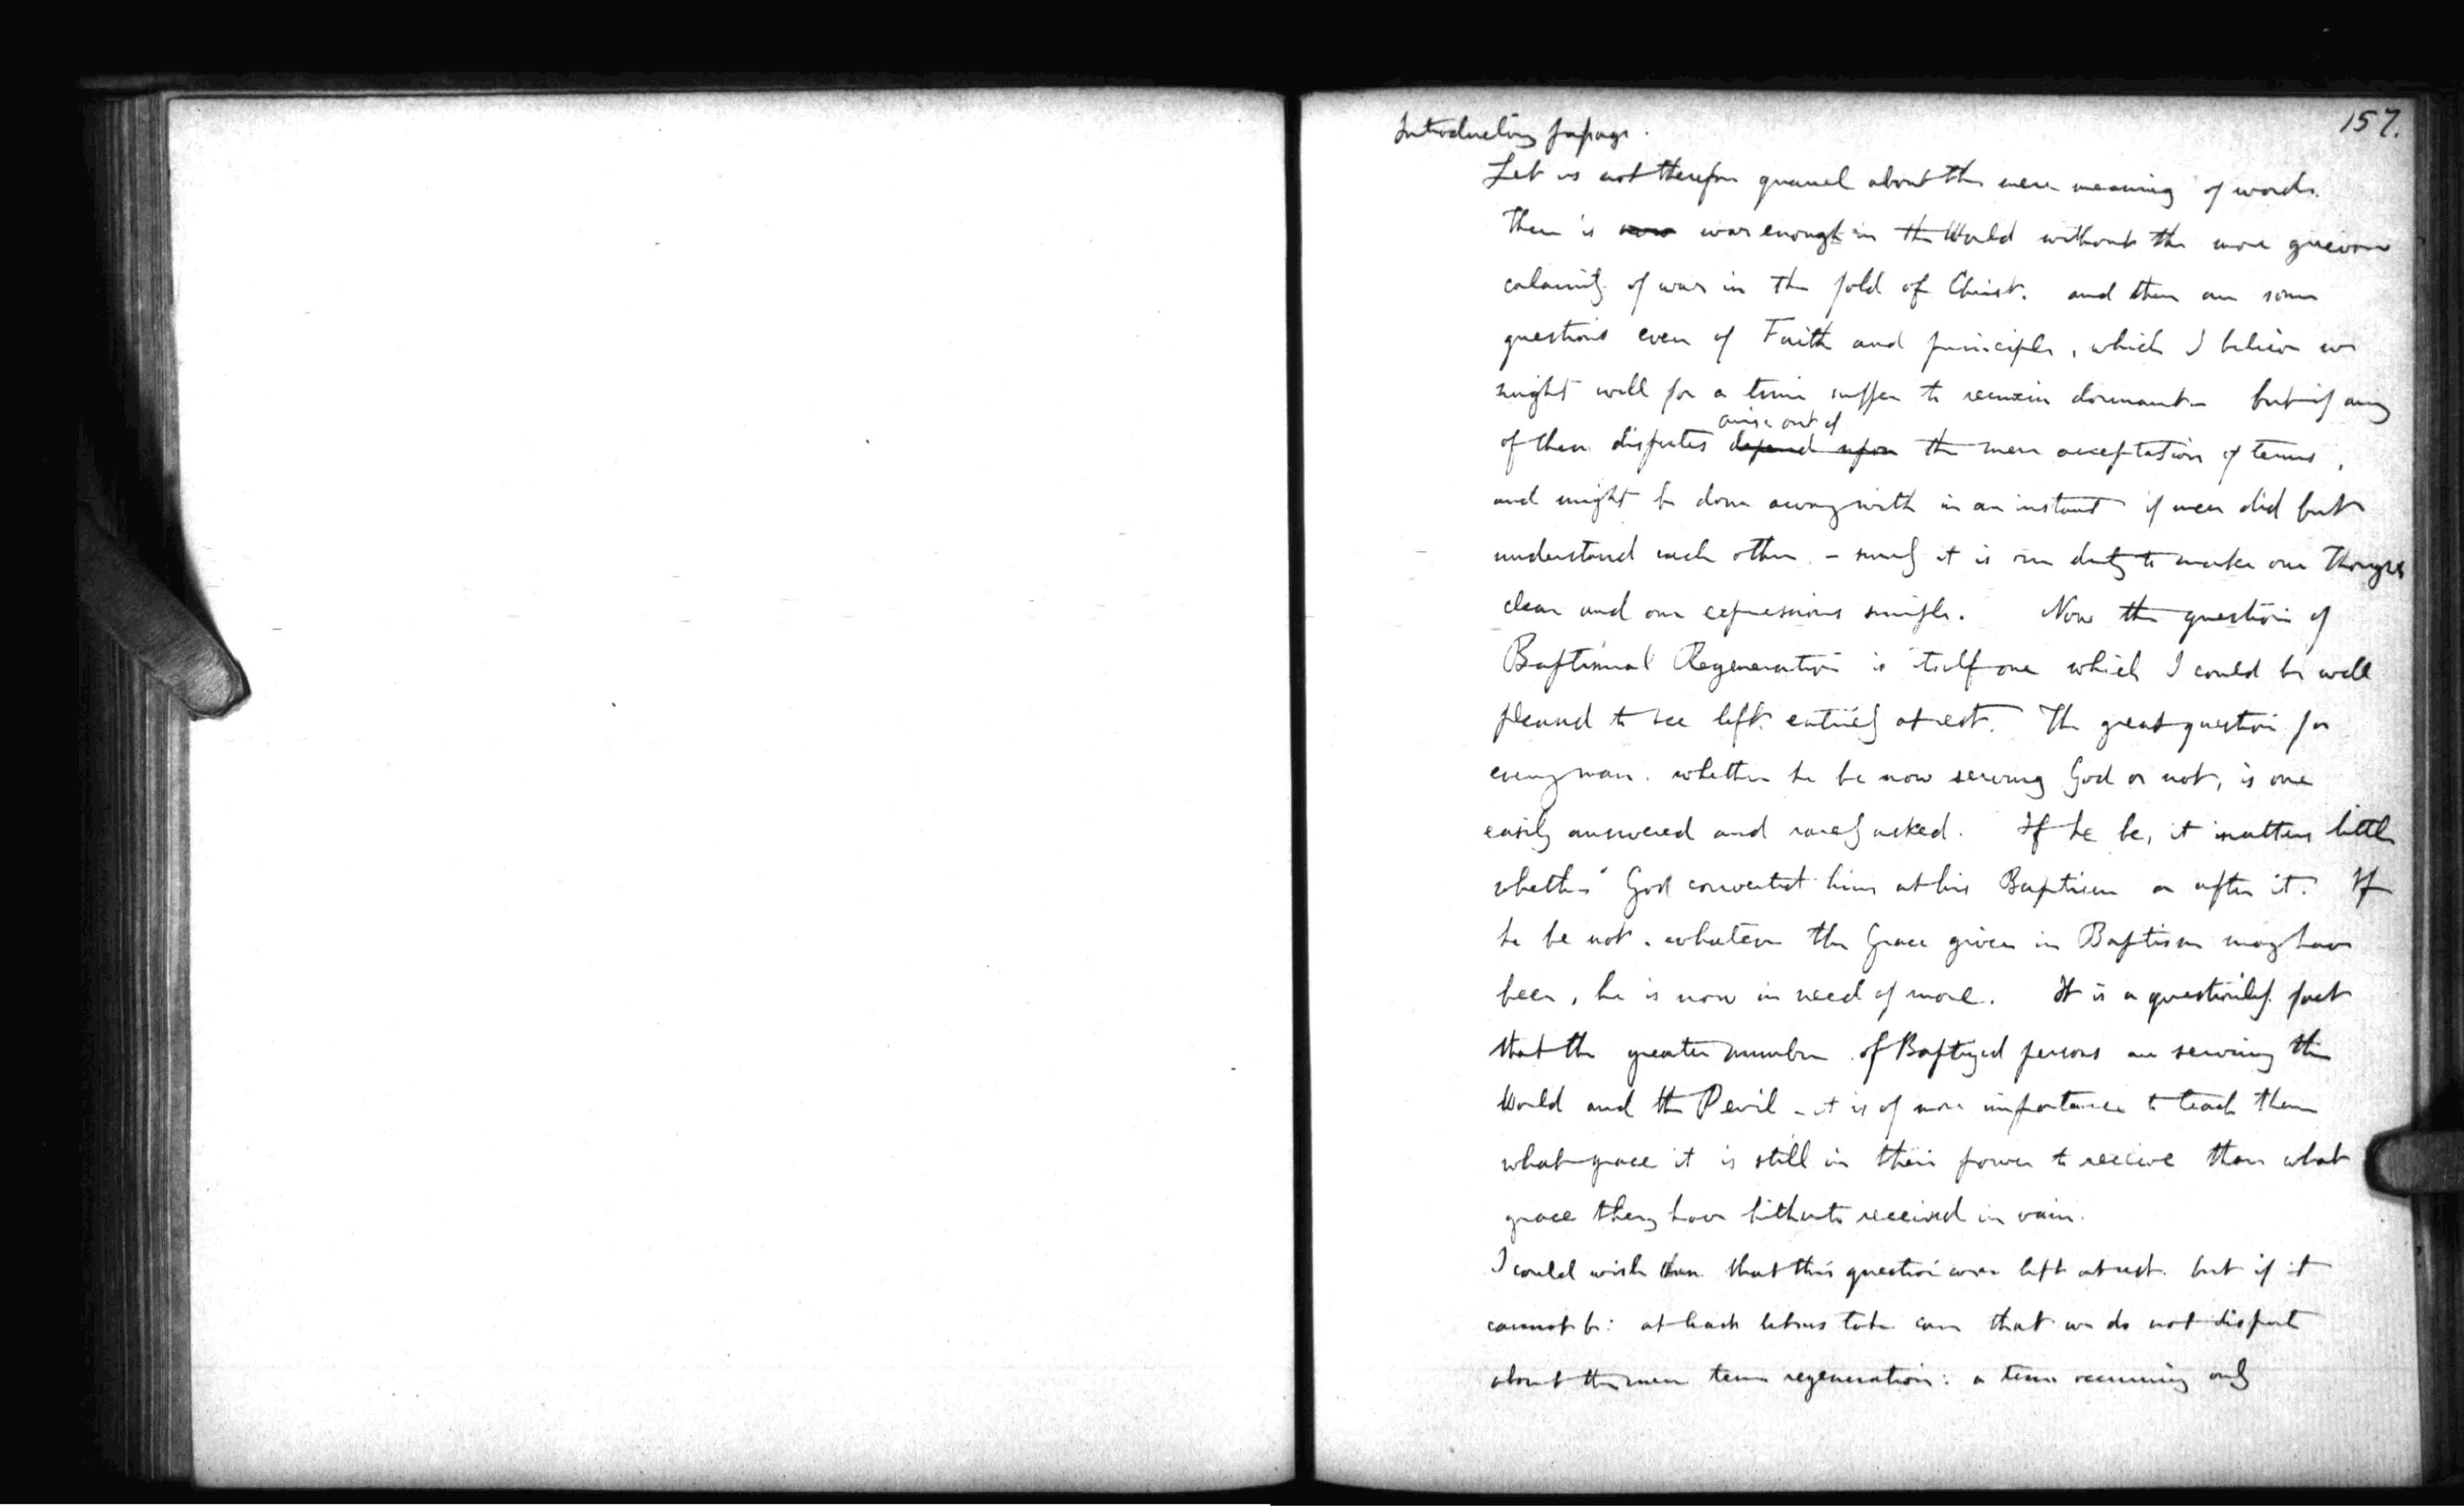 157.
Introductory passage.
Let us not therefore quarrel about the mere meaning of words.
There is war enough in the World without the more grievous
calamity of war in the fold of Christ. and there are some
questions even of Faith and principle, which I believe we
might well for a time suffer to remain dormant - but if any
arise out of
of these disputes depend upon the mere acceptation of terms,
and might be done away with in an instant if men did but
understand each other. - surely it is our duty to make our thoughts
clear and our expressions simple. Now the question of
Baptismal Regeneration is itself one which I could be well
pleased to see left entirely at rest. The great question for
every man. whether he be now serving God or not, is one
easily answered and rarely asked. If he be, it matters little
whether God converted him at his Baptism or after it. If
he be not, whatever the Grace given in Baptism may have
been, he is now in need of more. It is a questionless fact
that the greater number of Baptized persons are serving the
World and the Devil - it is of more importance to teach them
what grace it is still in their power to receive than what
grace they have hitherto received in vain.
I could wish then that this question were left at rest. but if it
cannot be: at least let us take care that we do not dispute
about the mere term regeneration: a term occurring only